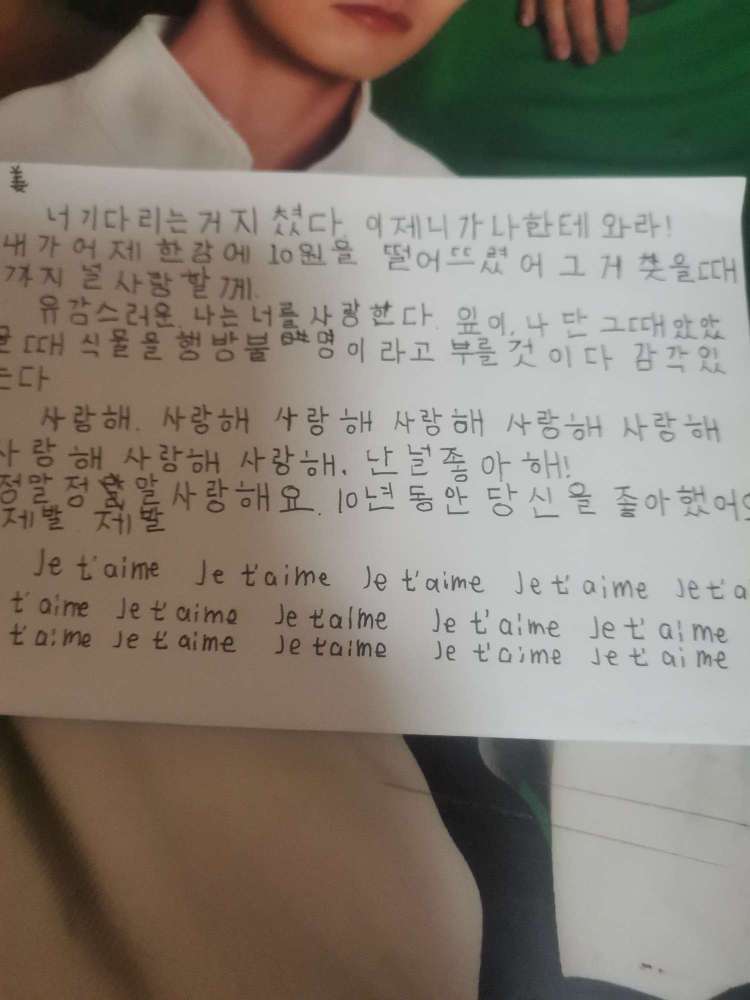 姜
너 기다리는거 지쳤다. 이제 니가 나한테 와라!
내가 어제 한강에 10원을 떨어뜨렸어 그거 찾을때
까지 널 사랑할게.
유감스러운. 나는 너를 사랑한다. 잎이, 나 단 그때
때 식물을 행방불명이라고 부를 것이다 감각있
는다
사람해. 사랑해 사랑해 사랑해 사랑해 사랑해
사랑해 사랑해 사랑해. 난 널 좋아해!
정말 정말 사랑해요. 10년동안 당신을 좋아했어요
제발 제발
Je t'aime Je t'aime Je t'aime Je t'aime Je t'a
t'aime Je t'aime Je t'aime Je t'aime Je t'aime
t'aime Je t'aime Je t'aime Je t'aime Je t'aime